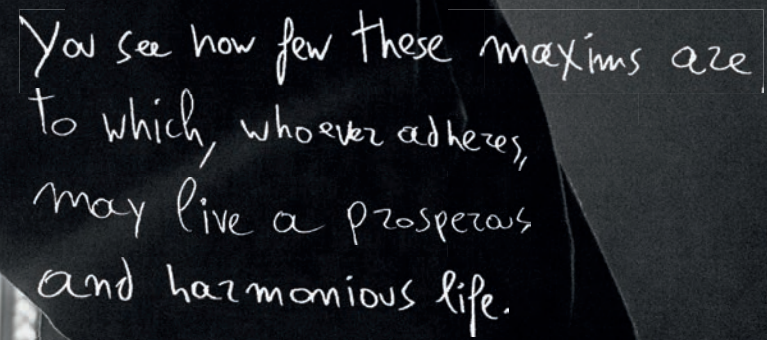 You see how few these maxims are
to which, whoever adheres,
may live a prosperous
and harmonious life.